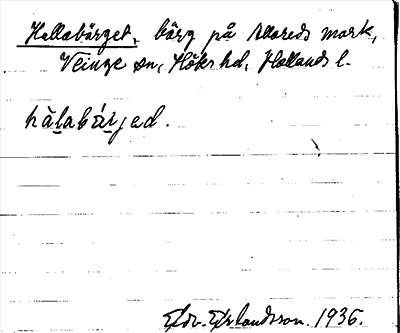 Hallabärget, bärg på Allareds mark,
Veinge sn, Höks hd, Hallands l.
hàlabárjad.
Edv. Erlandsson. 1936.